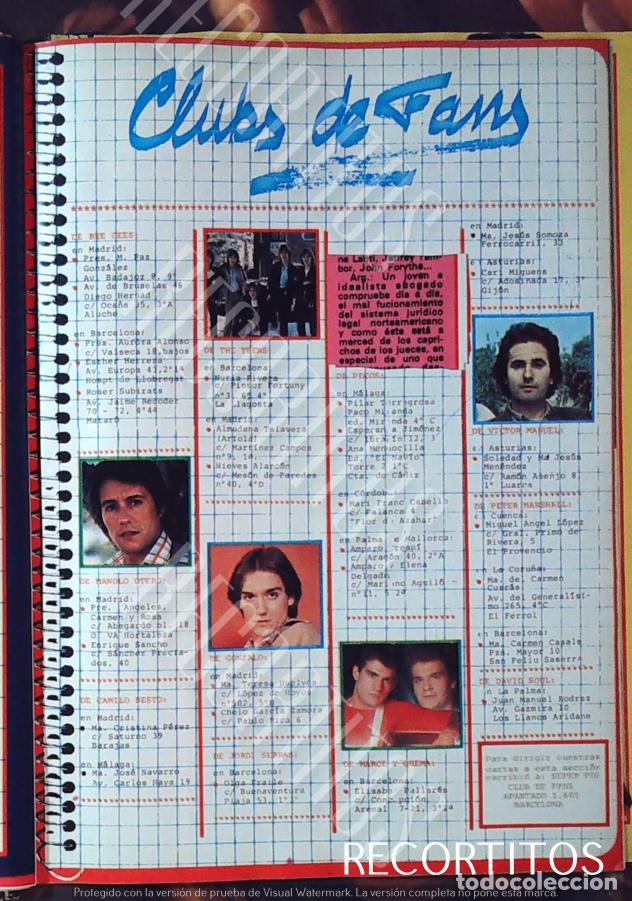 Clubs de Fans
DE BEE GEES:
en Madrid:
Pres. M. Paz
González
Av. Badajoz 0, 9º
Av. de Bruselas 46
Diego Hernad
c/ Ocaña 35, 3ºA
Aluche
en Barcelona:
Pres. Aurora Alonso
c/ Valseca 18, bajos
Esther Herrera
Av. Europa 43, 2º1ª
Hospt de Llobregat
Roser Subirats
Av. Jaime Recoder
70 - 72, 4º4ª
Mataró
DE MANOLO OTERO:
en Madrid:
Pre. Angeles,
Carmen y Rosa
c/ Abegardo bl. 18
VA Hortaleza
Enrique Sancho
c/ Sánchez Precia-
dos, 40
DE CAMILO SESTO:
en Madrid:
Ma. Cristina Pérez
c/ Saturno 39
Barajas
en Málaga:
Ma. José Navarro
Av. Carlos Haya 19
DE THE TEENS:
en Barcelona:
Nuria Rivera
c/ Pintor Fortuny
nº3, 6º 4ª
La Llagosta
en Madrid:
Almudena Talavera
(Ariola)
c/ Martínez Campos
nº9, 14
Nieves Alarcón
c/ Mesón de Paredes
nº40, 4ºD
DE GONZALO:
en Madrid:
Ma. Teresa Huelves
c/ López de Hoyos
nº502, 5ºB
Chelo García Zamora
c/ Pablo Rica 6
DE JORDI SERRAS:
en Barcelona:
Olga Fraile
c/ Buenaventura
Plaja 53, 1º3ª
ne Lahti, Jeffrey Tam-
bor, John Forythe...
Arg.: Un joven e
idealista abogado
comprueba día a día,
el mal fucionamiento
del sistema jurídico
legal norteamericano
y cómo éste está a
merced de los capri-
chos de los jueces, en
especial de uno que
DE PECOS:
en Málaga
Pilar Torregrosa
Paco Miranda
ed. Miranda 4º C
Esperanza Jiménez
c/ Ibrahin 12, 3º
Ana Hermocilla
Ed. "El Navío"
Torre 2 1ºC
Cta. du Cádiz
en Córdob
Mari Franc Cabello
c/ Palanca
"Flor d Azahar"
en Palma Mallorca:
Amparo
c/ Aragón 40, 2ºA
Amparo y Elena
Delgado
c/ Mariano Aguiló -
nº11, 5 2ª
DE MARCE Y CHEMA:
en Barcelona:
Elisabe Pallarés
c/ Concepción
Arenal 7-21, 3º2ª
en Madrid:
Ma. Jesús Somoza
Ferrocarril, 33
Asturias:
Cari Miguens
c/ Adosinada 17, 3º
Gijón
DE VICTOR MANUEL:
Asturias:
Soledad y Ma Jesús
Menéndez
c/ Ramón Asenjo 8
1º Luarca
DE PETER MARSHALL:
Cuenca:
Miquel Angel López
c/ Gral. Primo de
Rivera, 5
El Provencio
La Coruña:
Ma. del Carmen
Cusrás
Av. del Generalísi-
mo 265, 4ºC
El Ferrol
en Barcelona:
Ma. Carmen Casals
Pza. Mayor 10
San Feliu Saserra
DE DAVID SOUL:
en La Palma:
Juan Manuel Rodrez
Av. Gazmira 10
Los Llanos Aridane
Para dirigir vuestras
cartas a esta sección
escribid a: SUPER POP
CLUB DE FANS
APARTADO 1.601
BARCELONA
RECORTITOS
todocoleccion
Protegido con la versión de prueba de Visual Watermark. La versión completa no pone esta marca.